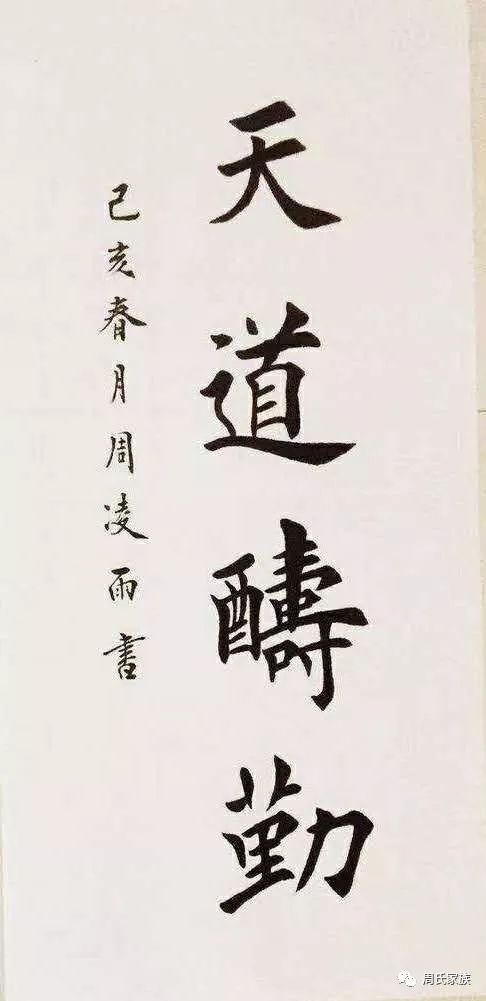 天道醻勤
己亥春月周凌雨書
周氏家族